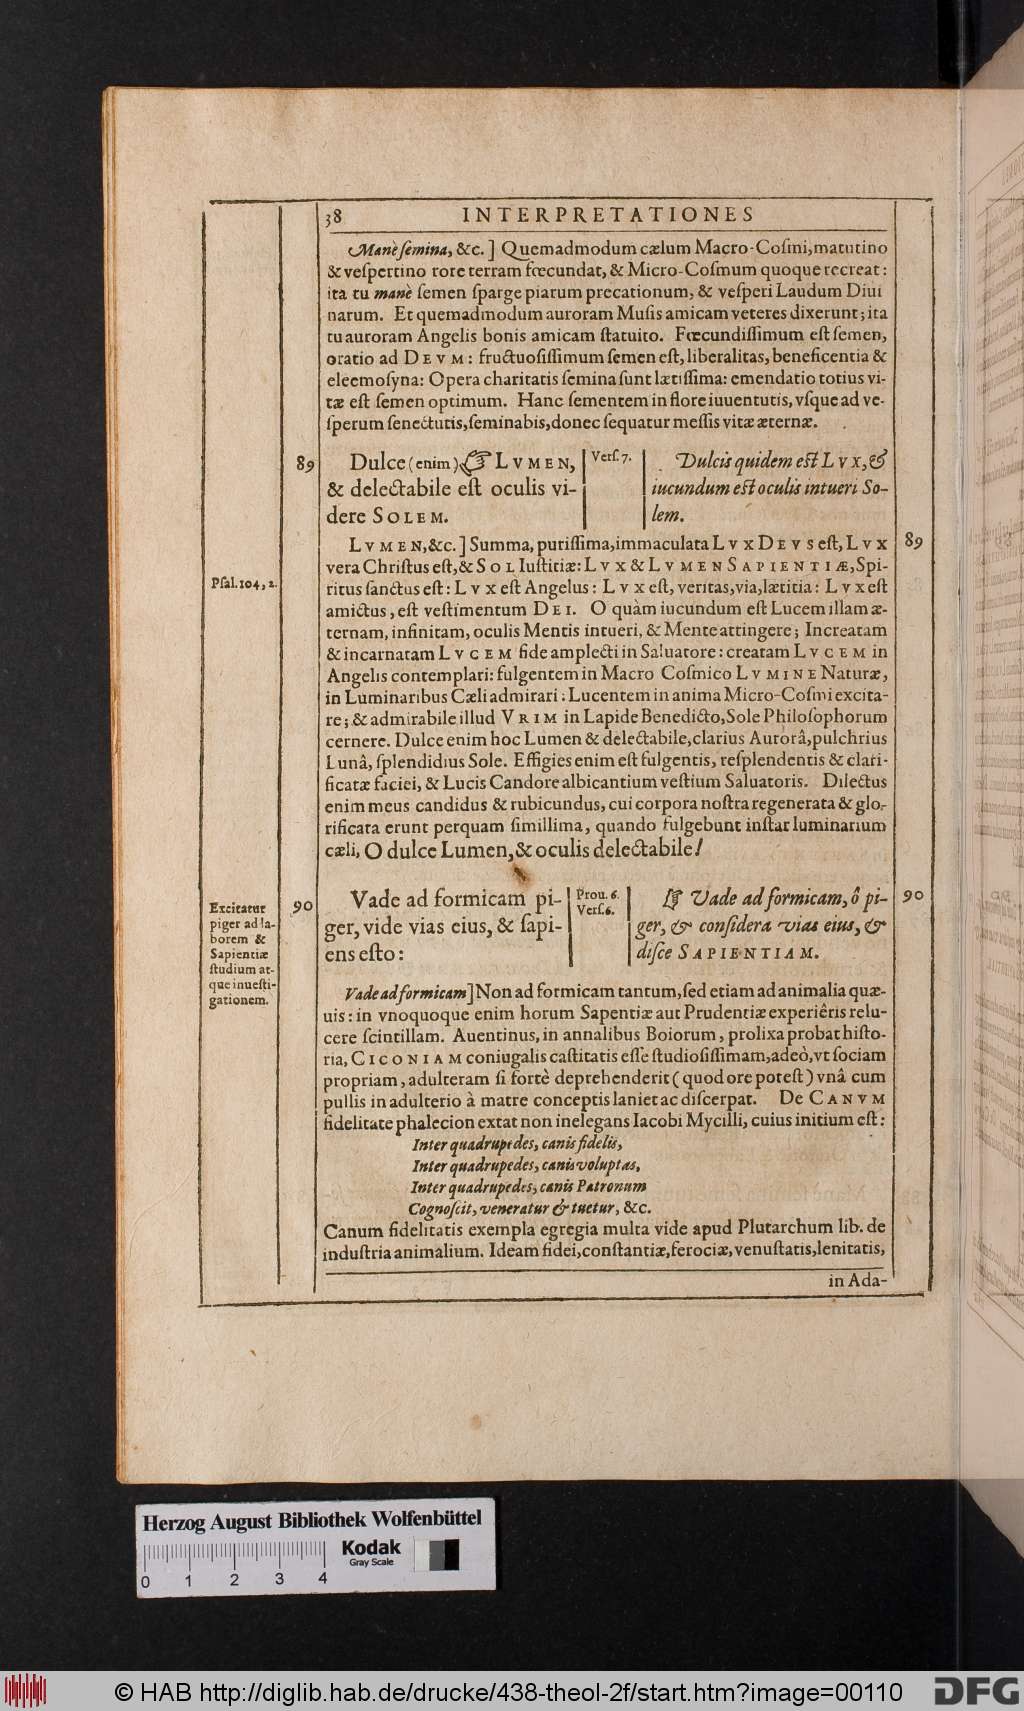 38 INTERPRETATIONES
Manè ſemina, &c. ] Quemadmodum cælum Macro-Coſmi, matutino
& veſpertino rore terram fœcundat, & Micro-Coſmum quoque recreat:
ita tu manè ſemen ſparge piarum precationum, & veſperi Laudum Diui
narum. Et quemadmodum auroram Muſis amicam veteres dixerunt; ita
tu auroram Angelis bonis amicam ſtatuito. Fœcundiſſimum eſt ſemen,
oratio ad DEVM: fructuoſiſſimum ſemen eſt, liberalitas, beneficentia &
eleemoſyna: Opera charitatis ſemina ſunt lætiſſima: emendatio totius vi-
tæ eſt ſemen optimum. Hanc ſementem in flore iuuentutis, vſque ad ve-
ſperum ſenectutis, ſeminabis, donec ſequatur meſſis vitæ æternæ.
89
Dulce (enim) ☞ LVMEN,
& delectabile eſt oculis vi-
dere SOLEM.
Verſ. 7.
Dulcis quidem eſt LVX, &
iucundum eſt oculis intueri So-
lem.
89
LVMEN, &c. ] Summa, puriſſima, immaculata LVX DEVS eſt, LVX
vera Chriſtus eſt, & SOL Iuſtitiæ: LVX & LVMEN SAPIENTIÆ, Spi-
ritus ſanctus eſt: LVX eſt Angelus: LVX eſt, veritas, via, lætitia: LVX eſt
Pſal. 104, 2.
amictus, eſt veſtimentum DEI. O quàm iucundum eſt Lucem illam æ-
ternam, infinitam, oculis Mentis intueri, & Mente attingere; Increatam
& incarnatam LVCEM fide amplecti in Saluatore: creatam LVCEM in
Angelis contemplari: fulgentem in Macro Coſmico LVMINE Naturæ,
in Luminaribus Cæli admirari: Lucentem in anima Micro-Coſmi excita-
re; & admirabile illud VRIM in Lapide Benedicto, Sole Philoſophorum
cernere. Dulce enim hoc Lumen & delectabile, clarius Aurorâ, pulchrius
Lunâ, ſplendidius Sole. Effigies enim eſt fulgentis, reſplendentis & clari-
ficatæ faciei, & Lucis Candore albicantium veſtium Saluatoris. Dilectus
enim meus candidus & rubicundus, cui corpora noſtra regenerata & glo-
rificata erunt perquam ſimillima, quando fulgebunt inſtar luminarium
cæli, O dulce Lumen, & oculis delectabile!
Excitatur
piger ad la-
borem &
Sapientiæ
ſtudium at-
que inueſti-
gationem.
90
Vade ad formicam pi-
ger, vide vias eius, & ſapi-
ens eſto:
Prou. 6.
Verſ. 6.
☞ Vade ad formicam, ô pi-
ger, & conſidera vias eius, &
diſce SAPIENTIAM.
90
Vade ad formicam ] Non ad formicam tantum, ſed etiam ad animalia quæ-
uis: in vnoquoque enim horum Sapentiæ aut Prudentiæ experiêris relu-
cere ſcintillam. Auentinus, in annalibus Boiorum, prolixa probat hiſto-
ria, CICONIAM coniugalis caſtitatis eſſe ſtudioſiſſimam, adeò, vt ſociam
propriam, adulteram ſi fortè deprehenderit ( quod ore poteſt ) vnâ cum
pullis in adulterio à matre conceptis laniet ac diſcerpat. De CANVM
fidelitate phalecion extat non inelegans Iacobi Mycilli, cuius initium eſt:
Inter quadrupedes, canis fidelis,
Inter quadrupedes, canis voluptas,
Inter quadrupedes, canis Patronum
Cognoſcit, veneratur & tuetur, &c.
Canum fidelitatis exempla egregia multa vide apud Plutarchum lib. de
induſtria animalium. Ideam fidei, conſtantiæ, ferociæ, venuſtatis, lenitatis,
in Ada-
Herzog August Bibliothek Wolfenbüttel
Kodak
Gray Scale
0 1 2 3 4
© HAB http://diglib.hab.de/drucke/438-theol-2f/start.htm?image=00110
DFG